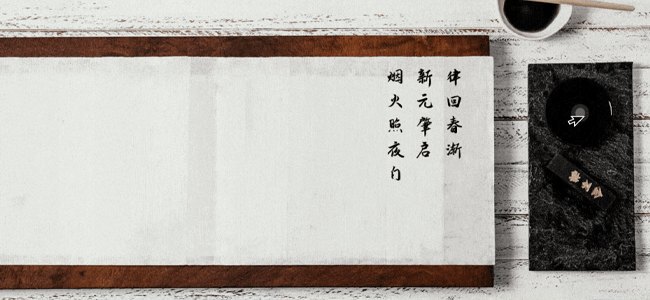 律回春渐
新元肇启
烟火照夜门